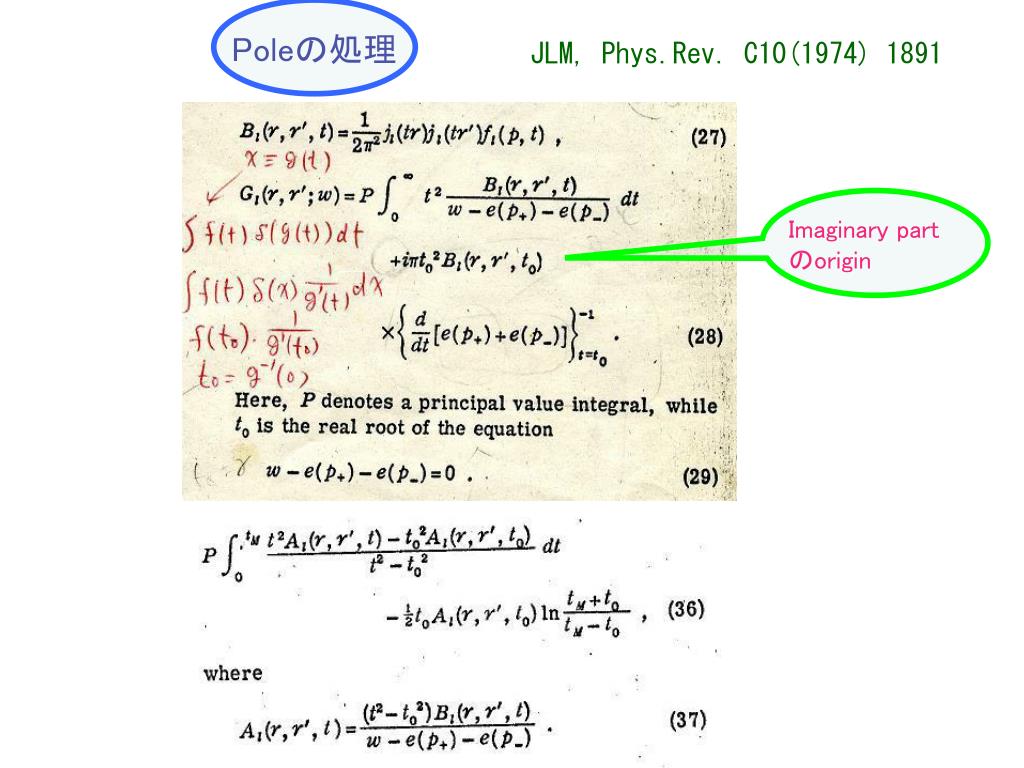 Poleの処理
JLM, Phys.Rev. C10(1974) 1891
B_l(r, r', t) = 1/2π² j_l(tr)j_l(tr')f_l(p, t) , (27)
x = g(t)
G_l(r, r'; w) = P ∫_0^∞ t² B_l(r, r', t) / w − e(p_+) − e(p_−) dt
∫ f(t) δ(g(t)) dt
Imaginary part
のorigin
+iπt_0² B_l(r, r', t_0)
∫ f(t) δ(x) 1/g'(t) dx
× { d/dt [e(p_+) + e(p_−)] }^{-1}_{t=t_0} . (28)
f(t_0) · 1/g'(t_0)
t_0 = g^{-1}(0)
Here, P denotes a principal value integral, while
t_0 is the real root of the equation
w − e(p_+) − e(p_−) = 0 . (29)
P ∫_0^{t_M} t²A_l(r, r', t) − t_0²A_l(r, r', t_0) / t² − t_0² dt
− ½ t_0 A_l(r, r', t_0) ln t_M + t_0 / t_M − t_0 , (36)
where
A_l(r, r', t) = (t² − t_0²) B_l(r, r', t) / w − e(p_+) − e(p_−) . (37)